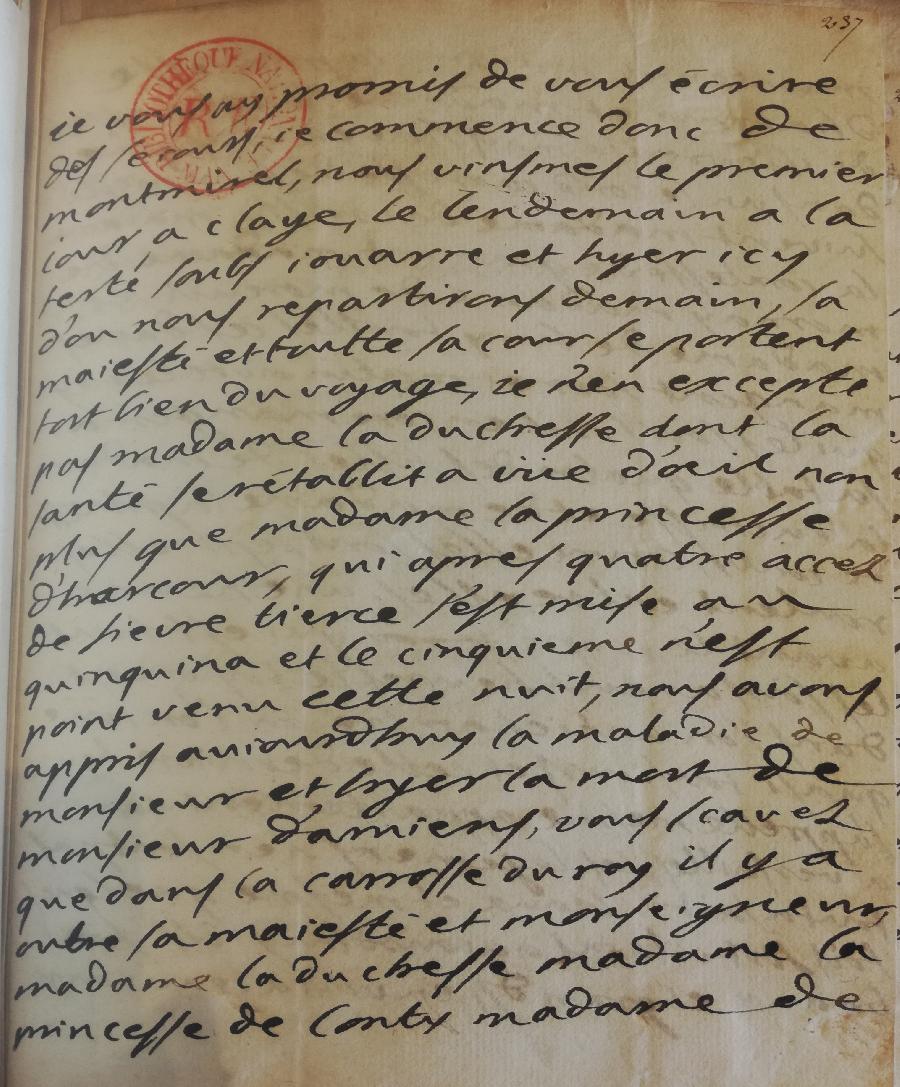 237
BIBLIOTHEQUE NA
ie vous ay promis de vous écrire
des ie commence donc de
montmirel, nous vinsmes le premier
iour a claye, le lendemain a la
ferté soubs iouarre et hyer icy
d'ou nous repartirons demain, sa
maiesté et toutte sa cour se portent
fort bien du voyage, ie n'en excepte
pas madame la duchesse dont la
santé se rétablit a viie d'oeil non
plus que madame la princesse
d'harcour, qui apres quatre accez
de fievre tierce s'est mise au
quinquina et le cinquieme n'est
point venu cette nuit, nous avons
appris auiourd'huy la maladie de
monsieur et hyer la mort de
monsieur d'amiens, vous scavez
que dans la carrosse du roy il y a
outre sa maiesté et monseigneur,
madame la duchesse madame la
princesse de Conty madame de